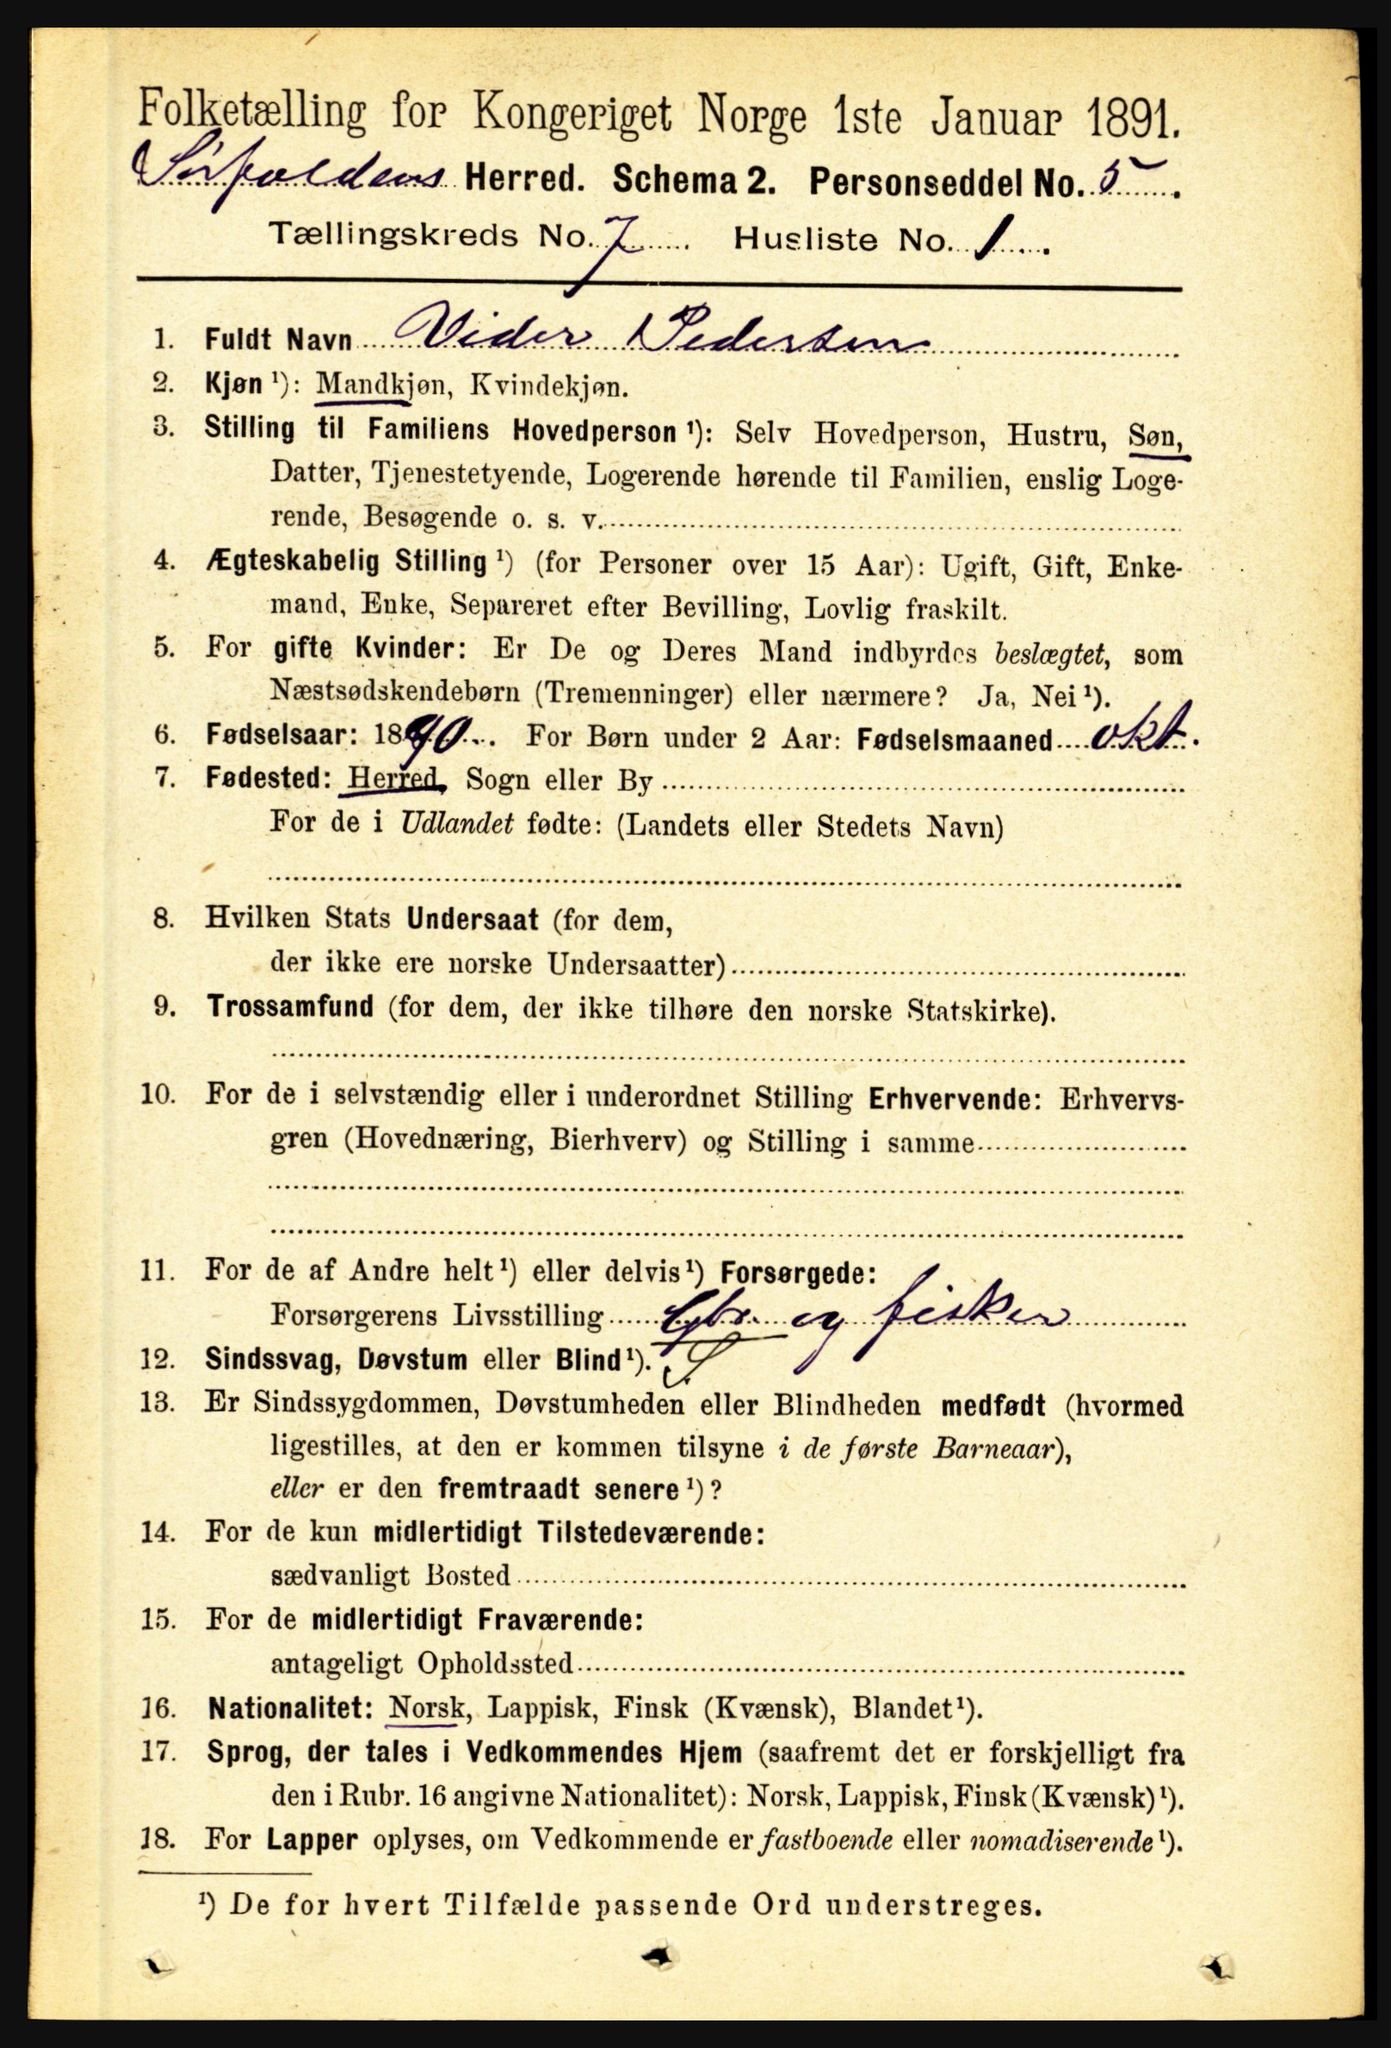 Folketælling for Kongeriget Norge 1ste Januar 1891.
Sörfoldens Herred. Schema 2. Personseddel No. 5
Tællingskreds No. 7 Husliste No. 1
1. Fuldt Navn Vider Pedersen
2. Kjøn ¹): Mandkjøn, Kvindekjøn.
3. Stilling til Familiens Hovedperson ¹): Selv Hovedperson, Hustru, Søn,
Datter, Tjenestetyende, Logerende hørende til Familien, enslig Loge-
rende, Besøgende o. s. v.
4. Ægteskabelig Stilling ¹) (for Personer over 15 Aar): Ugift, Gift, Enke-
mand, Enke, Separeret efter Bevilling, Lovlig fraskilt.
5. For gifte Kvinder: Er De og Deres Mand indbyrdes beslægtet, som
Næstsødskendebørn (Tremenninger) eller nærmere? Ja, Nei ¹).
6. Fødselsaar: 1890. For Børn under 2 Aar: Fødselsmaaned okt.
7. Fødested: Herred, Sogn eller By
For de i Udlandet fødte: (Landets eller Stedets Navn)
8. Hvilken Stats Undersaat (for dem,
der ikke ere norske Undersaatter)
9. Trossamfund (for dem, der ikke tilhøre den norske Statskirke).
10. For de i selvstændig eller i underordnet Stilling Erhvervende: Erhvervs-
gren (Hovednæring, Bierhverv) og Stilling i samme
11. For de af Andre helt ¹) eller delvis ¹) Forsørgede:
Forsørgerens Livsstilling Gbr. og fisker
12. Sindssvag, Døvstum eller Blind ¹). S
13. Er Sindssygdommen, Døvstumheden eller Blindheden medfødt (hvormed
ligestilles, at den er kommen tilsyne i de første Barneaar),
eller er den fremtraadt senere ¹)?
14. For de kun midlertidigt Tilstedeværende:
sædvanligt Bosted
15. For de midlertidigt Fraværende:
antageligt Opholdssted
16. Nationalitet: Norsk, Lappisk, Finsk (Kvænsk), Blandet ¹).
17. Sprog, der tales i Vedkommendes Hjem (saafremt det er forskjelligt fra
den i Rubr. 16 angivne Nationalitet): Norsk, Lappisk, Finsk (Kvænsk) ¹).
18. For Lapper oplyses, om Vedkommende er fastboende eller nomadiserende ¹).
¹) De for hvert Tilfælde passende Ord understreges.